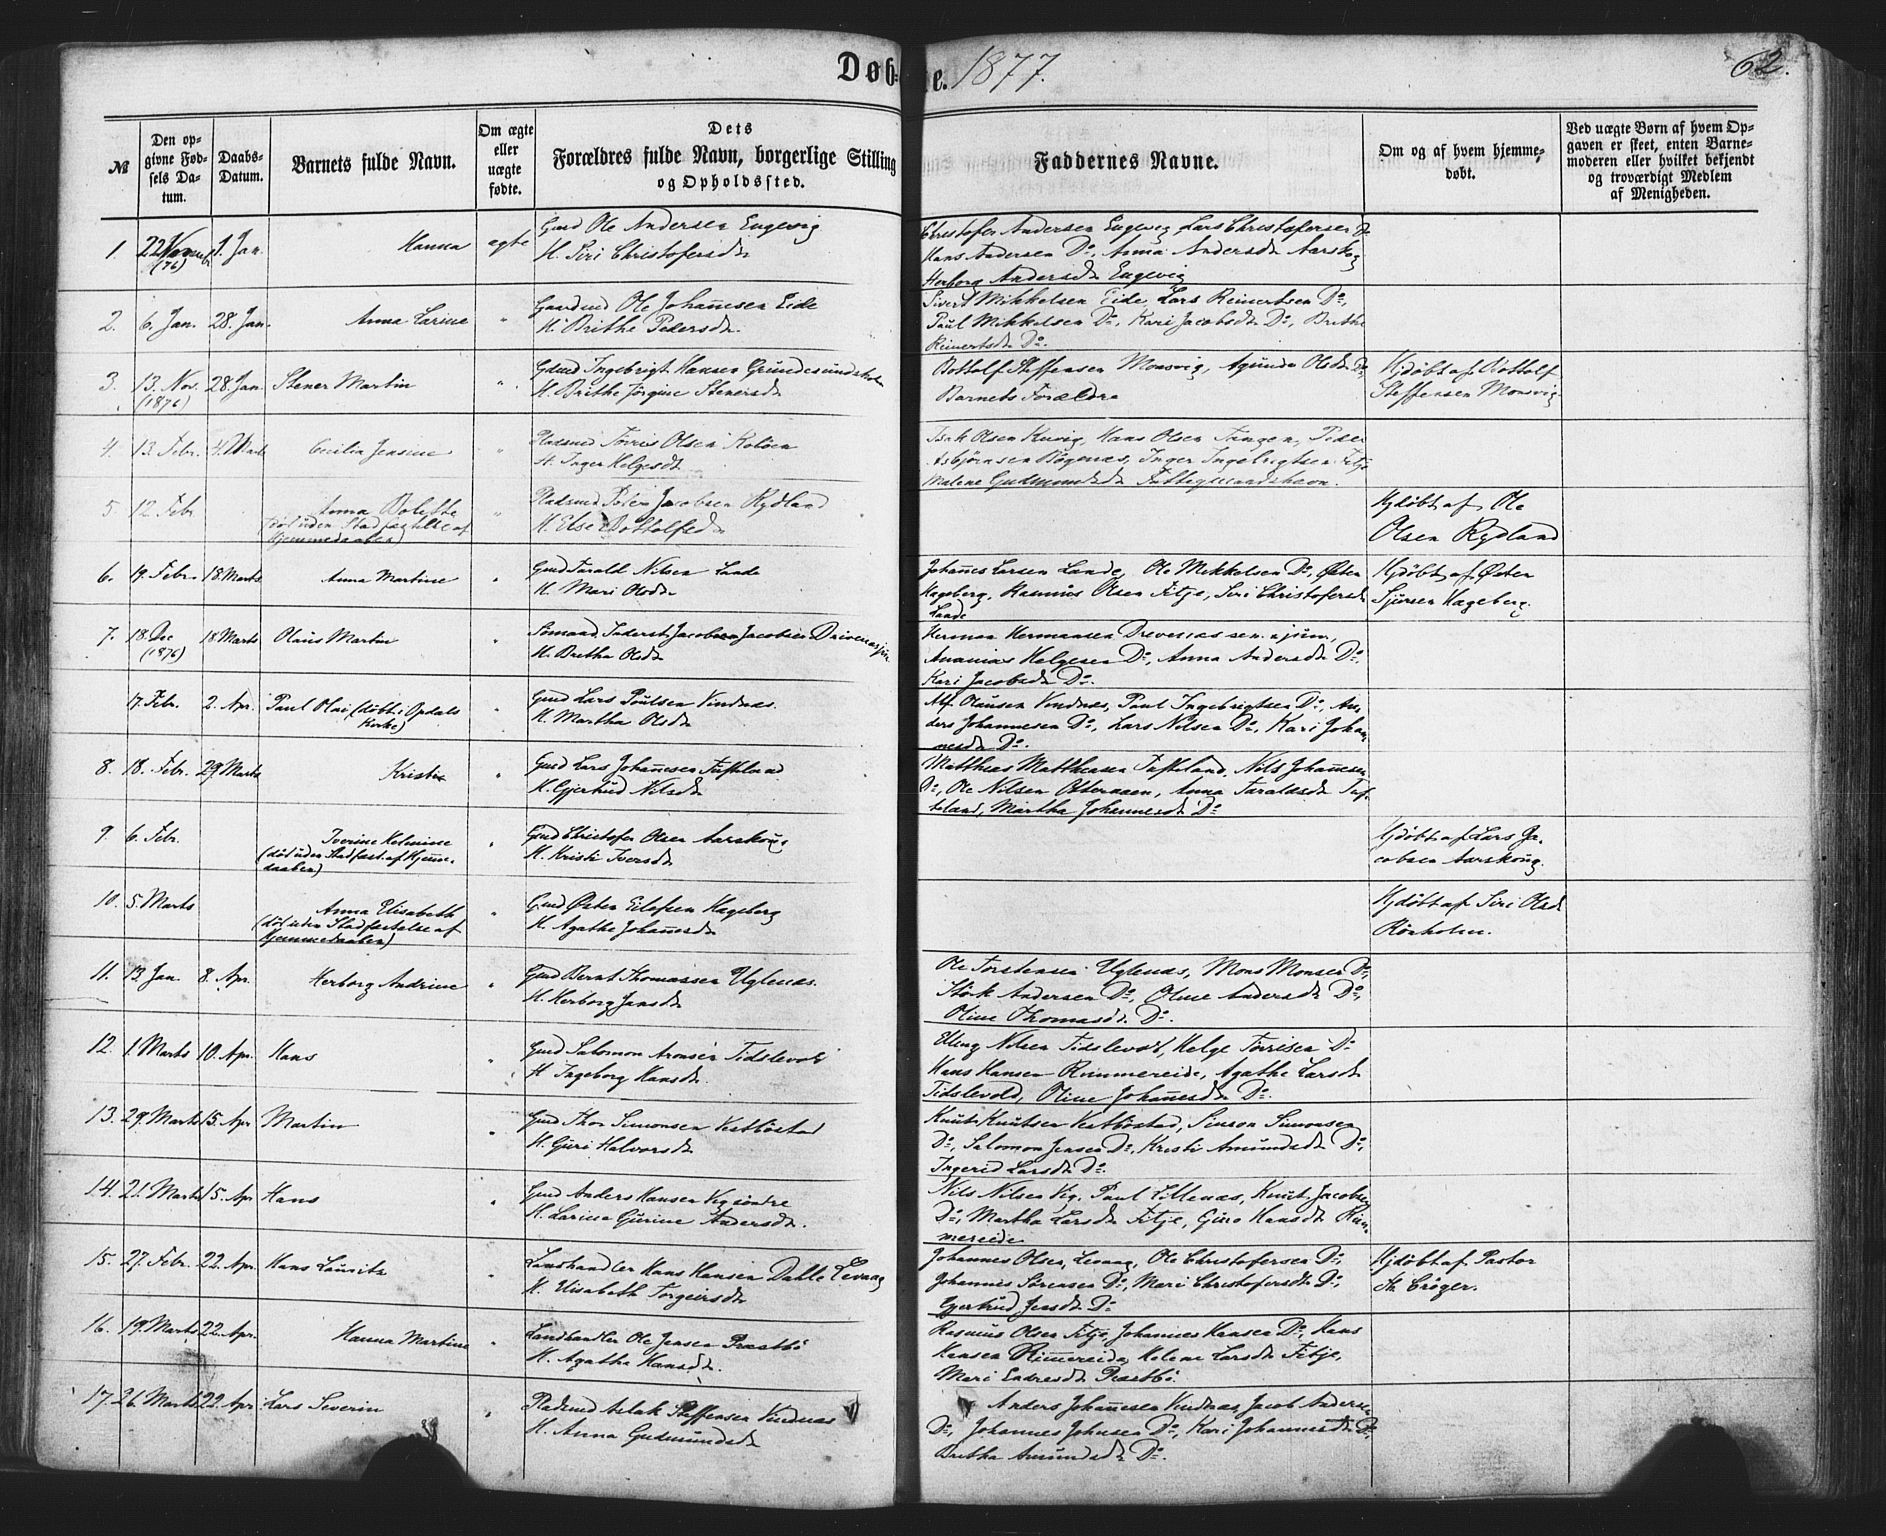 Døb- te. 1877. 62.
№
Den opgivne Fødsels Datum.
Daabs-Datum.
Barnets fulde Navn.
Om ægte eller uægte fødte.
Dets Forældres fulde Navn, borgerlige Stilling og Opholdssted.
Faddernes Navne.
Om og af hvem hjemmedøbt.
Ved uægte Børn af hvem Opgaven er skeet, enten Barnemoderen eller hvilket bekjendt og troværdigt Medlem af Menigheden.
1 22 Novemb (76) 1. Jan. Hanna ægte
Gmd Ole Andersen Engevig
H. Siri Christofersdtr
Christofer Andersen Engevig Lars Christofersen Do
Hans Andersen Do, Anna Andersdtr Aarskog
Herborg Andersdtr Engevig
2. 6. Jan. 28. Jan. Anna Larine "
Gaardmd Ole Johannesen Eide
H. Brithe Pedersdtr.
Sivert Mikkelsen Eide, Lars Reinertsen Do,
Paul Mikkelsen Do, Kari Jacobsdtr Do, Brithe
Reinertsdtr Do.
3. 13. Nov. (1876) 28. Jan. Stener Martin "
Gdmd Ingebrigt Hansen Grundesundsholm
H. Brithe Jørgine Stenersdtr
Bottolf Steffensen Monsvig, Agunda Olsdtr Do,
Barnets Forældre
Hjdøbt af Bottolf
Steffensen Monsvig
4. 13. Febr. 4. Marts Cecilia Jensine "
Pladsmd Torris Olsen Koløen
H. Inger Helgesdt
Isak Olsen Kuvig, Hans Olsen Tangen, Peder
Asbjørnsen Bøgenæs, Inger Ingebrigtsen Fitje
Malene Gudmundsdtr
5. 12. Febr. Anna Bolette
(død uden Stadfæstelse af
Hjemmedaaben) "
Pladsmd Peter Jacobsen Rydland
H. Else Bottolfsdtr
Hjdøbt af Ole
Olsen Rydland
6. 19. Febr. 18 Marts Anna Martine "
Gmd Tarald Nilsen Lande
H. Mari Olsdtr
Johannes Larsen Lande, Ole Mikkelsen Do, Østen
Hageberg, Rasmus Olsen Fitje, Siri Christofersdtr
Lande
Hjdøbt af Østen
Sjursen Hageberg.
7. 18. Dec (1876) 18 Marts Olaus Martin "
Sømand, Inderst Jacob Jacobsen Drivenæs jun
H. Bretha Olsdtr
Herman Hermansen Drevenæs sen. & jun.,
Ananias Helgesen Do, Anna Andersdtr Do,
Kari Jacobsdtr Do.
17. Febr. 2. Apr. Paul Olai (døbt i Opdals
Kirke) "
Gmd Lars Poulsen Vindnæs.
H. Martha Olsdtr
Alf Olausen Vindnæs, Paul Ingebrigtsen Do, An-
ders Johannesen Do, Lars Nilsen Do, Kari Johan-
nesdtr Do.
8. 18. Febr. 29 Marts Kristi "
Gmd Lars Johannesen Tufteland
H. Gjertrud Nilsdtr
Matthias Matthiasen Tufteland, Nils Johannesen
Do, Ole Nilsen Otternæen, Anna Taraldsdtr Tuf-
teland, Martha Johannesdtr Do
9. 6. Febr. Iverine Helmine
(død uden Stadfæst. af Hjemme-
daaben) "
Gmd Christofer Olsen Aarskoug
H. Kristi Iversdtr
Hjdøbt af Lars Ja-
cobsen Aarskoug.
10. 5. Marts Anna Elisabeth
(død uden Stadfæstelse af
Hjemmedaaben) "
Gmd Østen Eilefsen Hageberg
H. Agathe Johannesdtr
Hjdøbt af Siri Olsdtr
Rønholm.
11. 13. Jan. 8. Apr. Herborg Andrine "
Gmd Bernt Thomassen Uglenæs.
H. Herborg Jansdtr
Ole Torstensen Uglenæs, Mons Monsen Do,
Størk Andersen Do, Oline Andersdtr Do,
Oline Thomasdtr. Do.
12. 1. Marts 10. Apr. Hans "
Gmd Salomon Aronsen Tidslevold
H. Ingeborg Hansdtr.
Elling Nilsen Tidslevold, Helge Torrisen Do
Hans Hansen Rimmereide, Agathe Larsdtr
Tidslevold, Oline Johannesdtr Do.
13. 29. Marts 15. Apr Martin "
Gmd Thor Simonsen Vestbøstad
H. Guri Halvorsdtr
Knut Knutsen Vestbøstad, Simon Simonsen
Do, Salomon Jensen Do, Kristi Amundsdtr Do,
Ingerid Larsdtr Do.
14. 21. Marts 15. Apr Hans "
Gmd Anders Hansen Vig søndre
H. Larine Gurine Andersdtr.
Nils Nilsen Vig, Paul Littenæs, Knut Jacobsen
Do, Martha Larsdtr Fitje, Guro Hansdtr Rim-
mereide
15. 27. Febr. 22. Apr. Hans Lauritz "
Landhandler Hans Hansen Dahle Levaag
H. Elisabeth Torgeirsdtr
Johannes Olsen Levaag, Ole Christofersen Do,
Johannes Sørensen Do, Mari Christofersdtr Do,
Gjertrud Jensdtr Do
Hjdøbt af Pastor
St. Crøger.
16. 19. Marts 22. Apr. Hanna Martine "
Landhandler Ole Jensen Præstbø
H. Agathe Hansdtr.
Rasmus Olsen Fitje, Johannes Hansen Do, Hans
Hansen Rimmereide, Helene Larsdtr Fitje,
Mari Endresdtr Præstbø.
17. 26. Marts 22. Apr Lars Severin "
Pladsmd Aslak Steffensen Vindnæs
H. Anna Gudmundsdtr
Anders Johannesen Vindnæs, Jacob Andersen
Do, Johannes Johnsen Do, Kari Johannesdtr Do,
Bretha Amundsdtr Do.